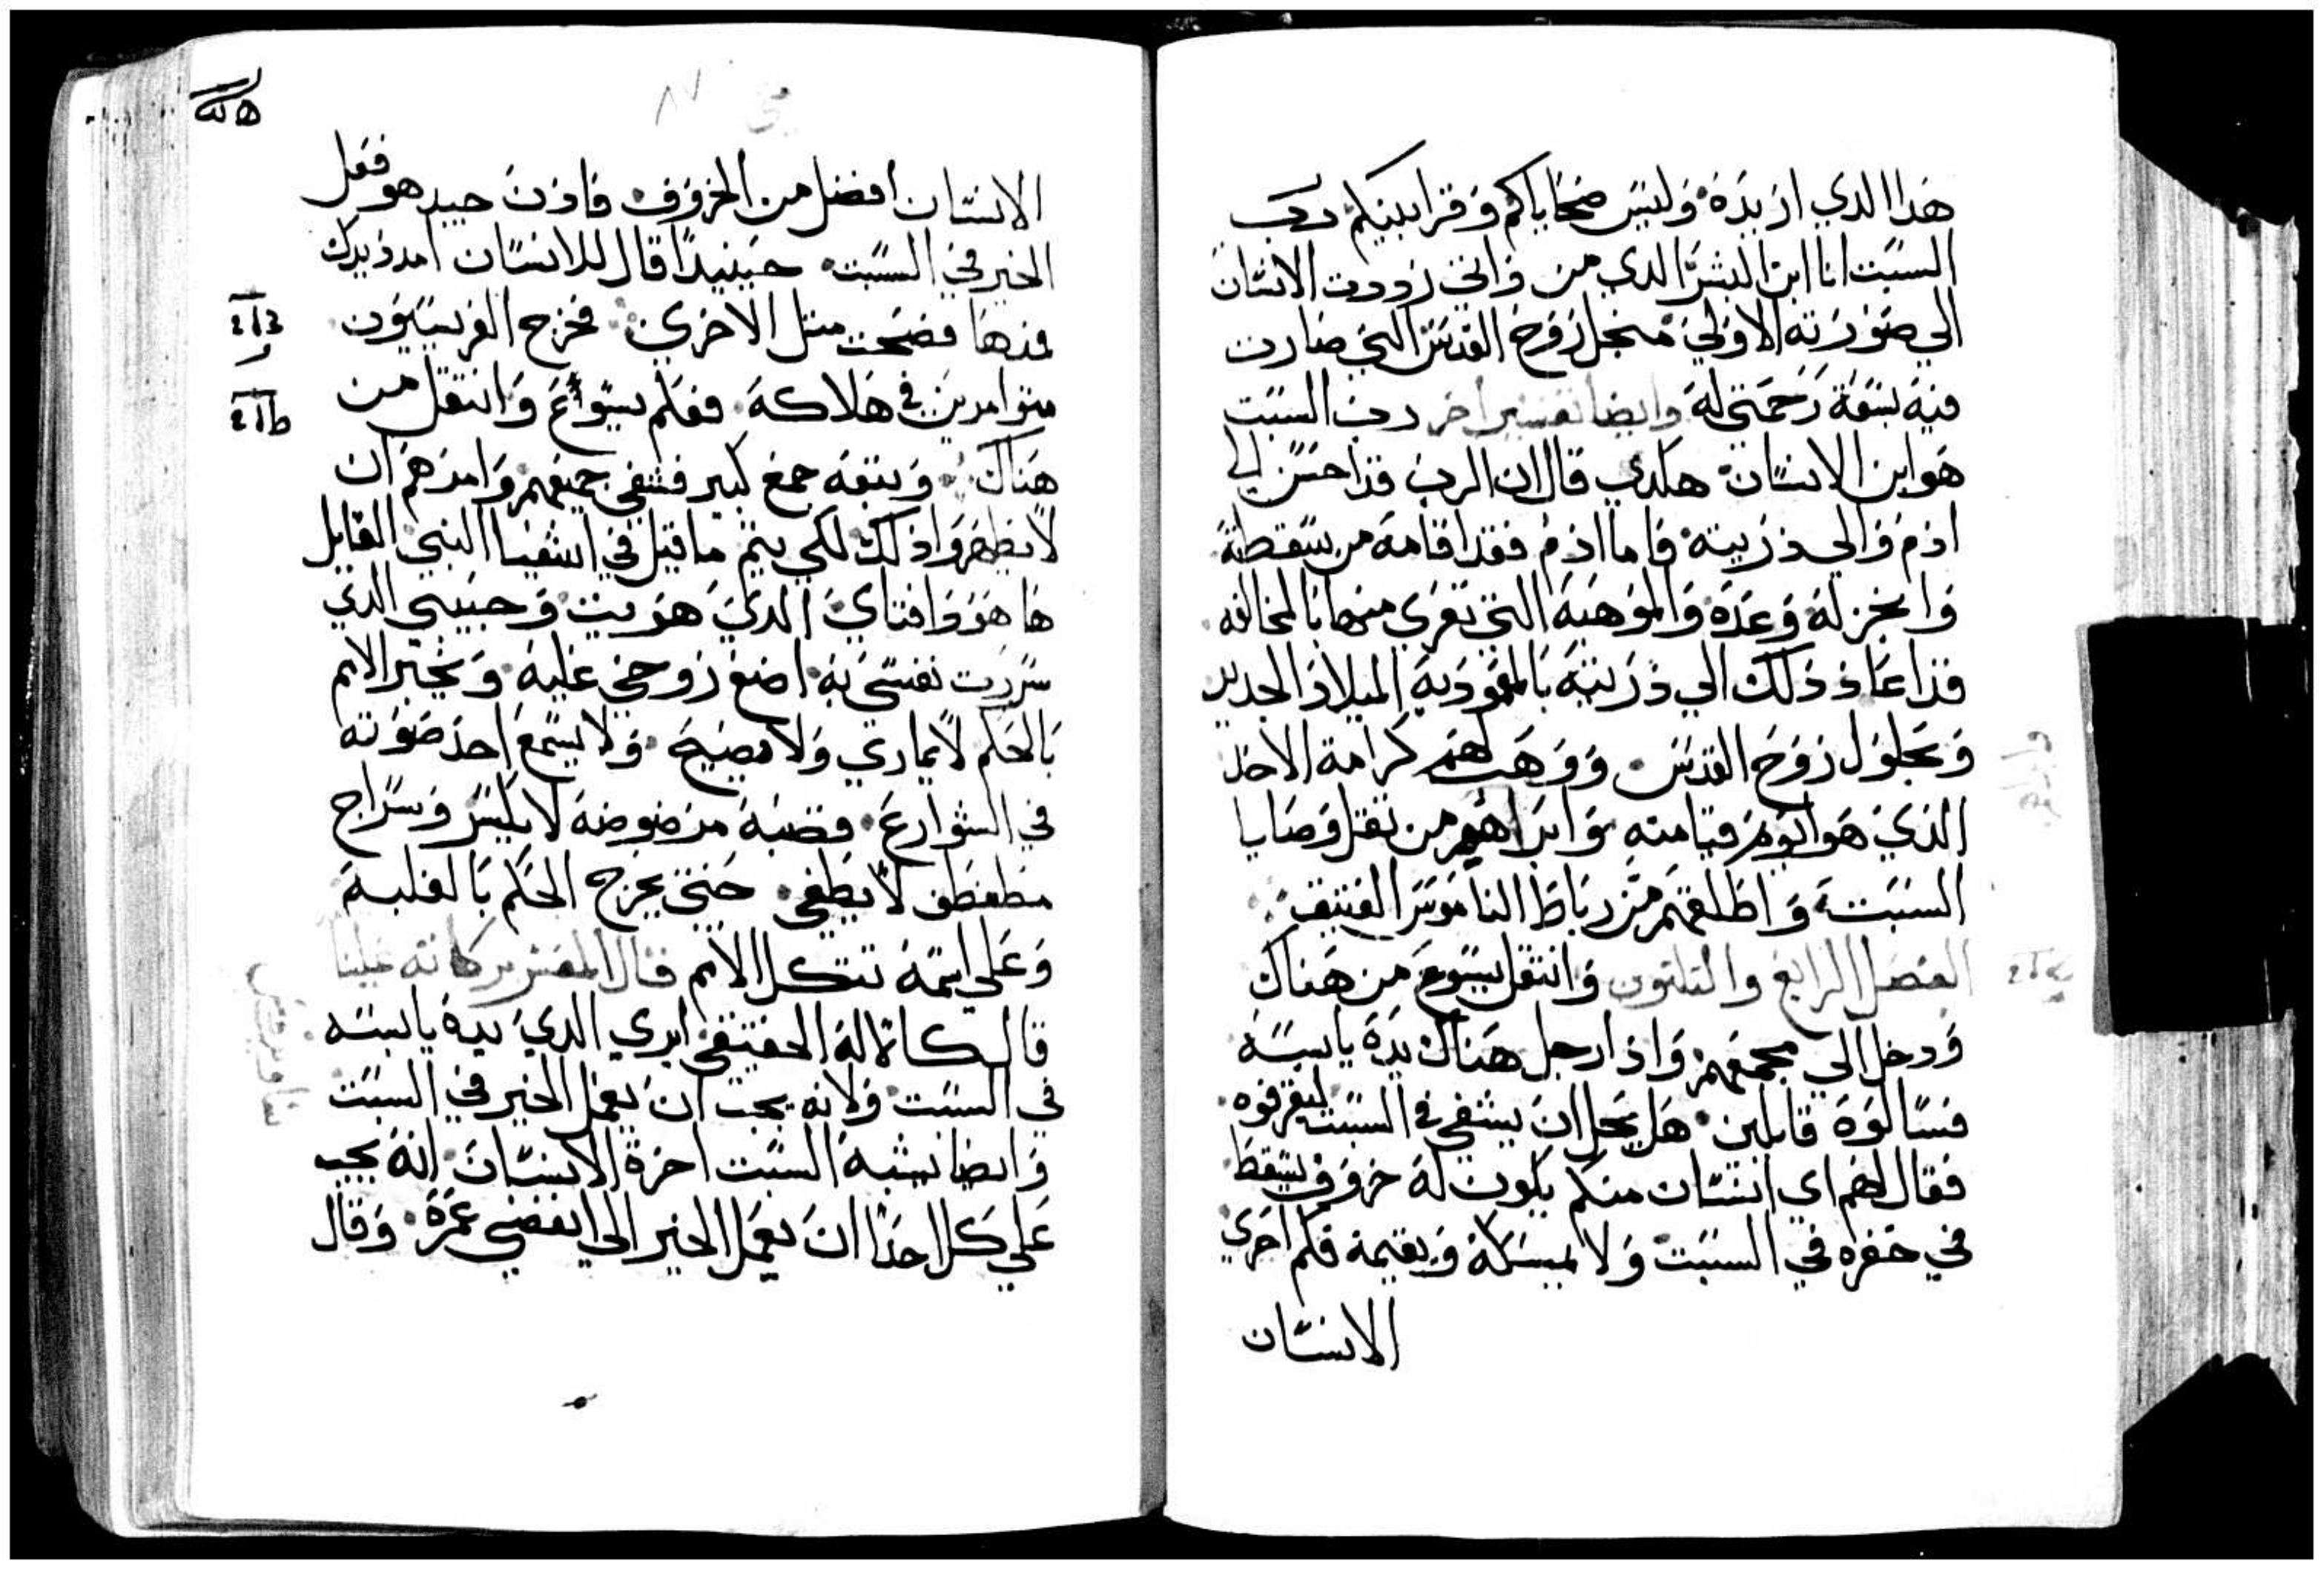 هدا الدي اريده وليس ضحاياكم وقرابينكم رب
السبت انا ابن البشر الدي من واني رددت الانسان
الي صورته الاولي منجل روح القدس التي صارت
فيه بسعة رحمتي له وايضا تفسير اخر رب السبت
هو ابن الانسان هكدي قال ان الرب قد احسن الي
ادم والي دريته فاما ادم فقد اقامه من سقطته
وانجز له وعده والموهبه التي تعري منها بالمخالفه
قد اعاد دلك الي دريته بالمعموديه الميلاد الجديد
وبحلول روح القدس ووهب لهم كرامة الاحد
الدي هو يوم قيامته وابراهم من تقل وصايا
السبت واطلقهم من رباط الناموس العتيق
الفصل الرابع والتلتون وانتقل يسوع من هناك
ودخل الي مجمعهم وادا رجل هناك يده يابسه
فسالوه قايلين هل يحل ان يشفي في السبت ليقرفوه
فقال لهم اي انسان منكم يكون له خروف يسقط
في حفره في السبت ولا يمسكه ويقيمه فكم احري
الانسان
الانسان افضل من الخروف فادن جيد هو فعل
الخير في السبت حينيدا قال للانسان امدد يدك
فمدها فصحت متل الاخري فخرج الفريسيون
متوامرين في هلاكه فعلم يسوع وانتقل من
هناك وتبعه جمع كبير فشفي جميعهم وامرهم ان
لا يظهروا دلك لكي يتم ما قيل في اشعيا النبي القايل
ها هو دا فتاي الدي هويت وحبيبي الدي
سررت نفسي به اضع روحي عليه ويخبر الامم
بالحكم لا يماري ولا يصيح ولا يسمع احد صوته
في الشوارع قصبه مرضوضه لا يكسر وسراج
مطفطف لا يطفي حتي يخرج الحكم بالغلبه
وعلي اسمه تتكل الامم قال المفسر بركاته علينا
قال كالاله الحقيقي ابري الدي يده يابسه
في السبت ولانه يجب ان يعمل الخير في السبت
وايضا نشبه السبت اخرة الانسان انه يجب
علي كل احدا ان يعمل الخير الي انقضي عمره وقال